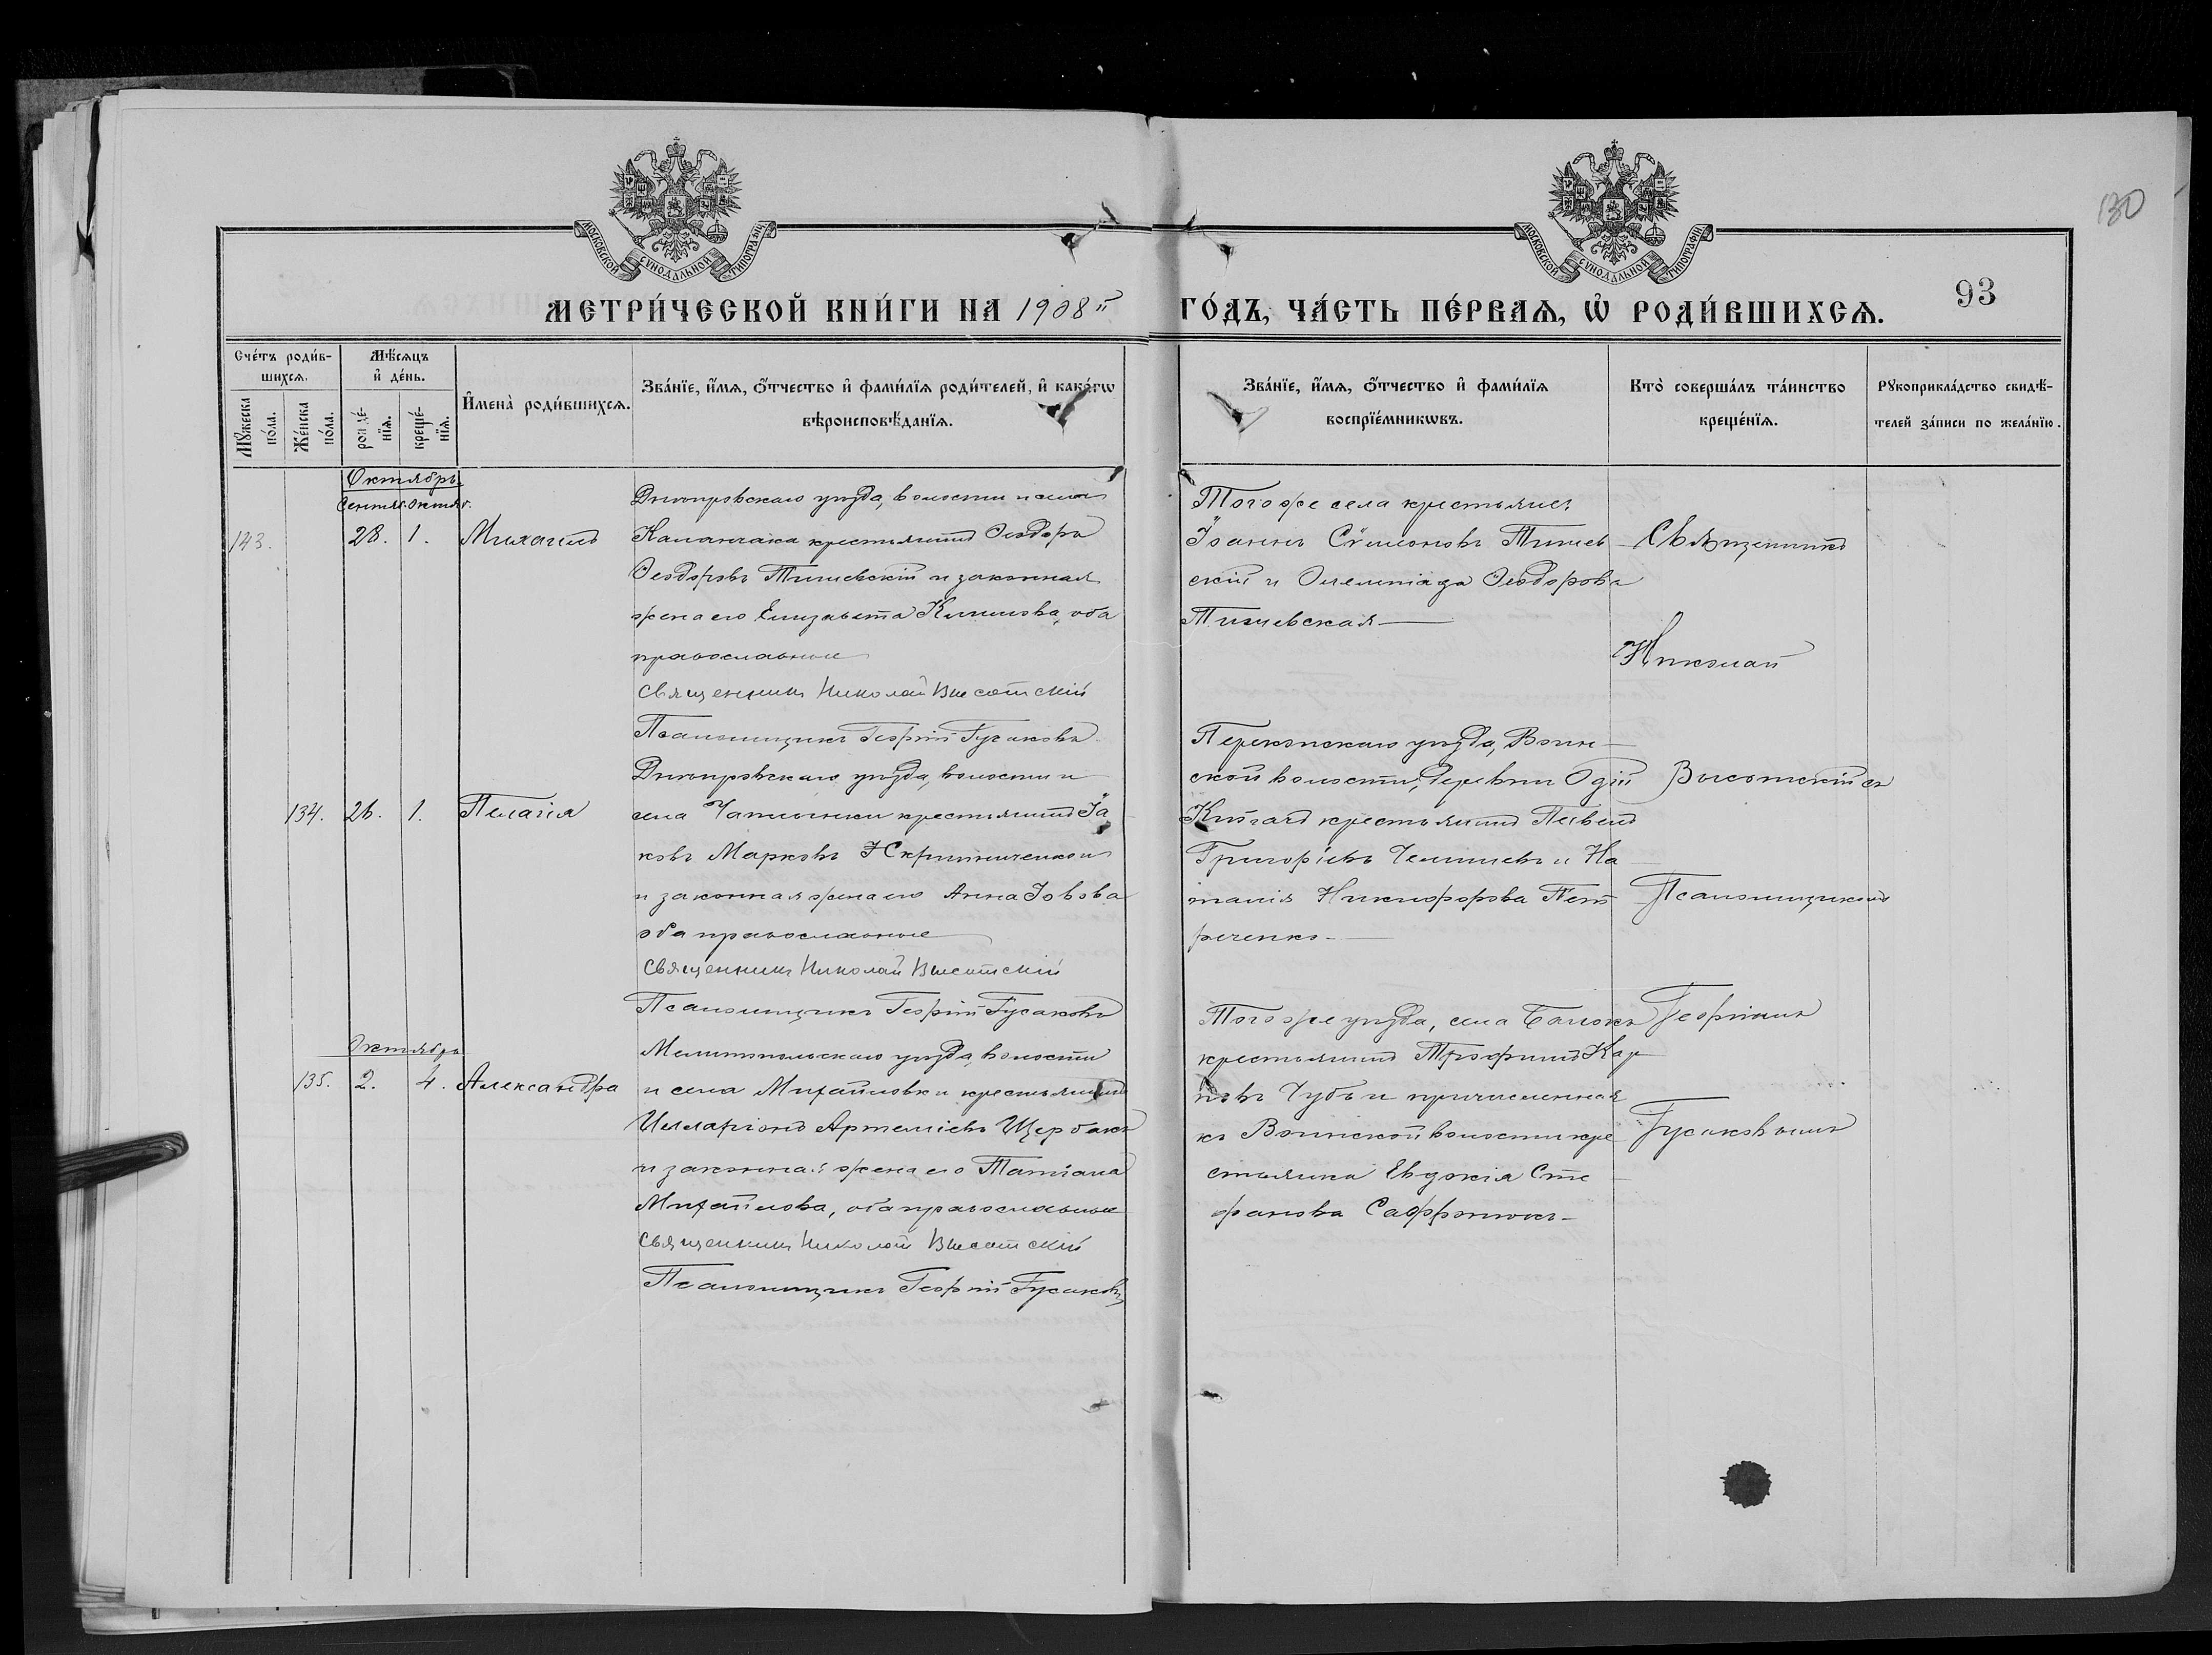 130
МОСКОВСКОЙ СУНОДАЛЬНОЙ ТИПОГРАФІИ
МОСКОВСКОЙ СУНОДАЛЬНОЙ ТИПОГРАФІИ
93
МЕТРИ́ЧЕСКОЙ КНИ́ГИ НА 1908й ГО́ДЪ, ЧА́СТЬ ПЕ́РВАѦ, Ѡ҆ РОДИ́ВШИХСѦ.
Сче́тъ роди́в-
шихсѧ.
Мꙋ́жеска по́ла.
Же́нска по́ла.
Мѣ́сѧцъ
и҆ де́нь.
рожде́-
нїѧ.
креще́-
нїѧ.
И҆мена̀ роди́вшихсѧ.
Зва́нїе, и҆́мѧ, ѻ҆́тчество и҆ фами́лїѧ роди́телей, и҆ како́гѡ
вѣроисповѣ́данїѧ.
Зва́нїе, и҆́мѧ, ѻ҆́тчество и҆ фами́лїѧ
воспрїе́мникѡвъ.
Кто̀ соверша́лъ та́инство
креще́нїѧ.
Рꙋкоприкла́дство свидѣ́-
телей за́писи по жела́нїю.
Октябрь
Сентяб. Октяб.
143. 28. 1. Михаилъ
Днѣпровскаго уѣзда, волости и села
Каланчака крестьянинъ Ѳеодоръ
Ѳеодоровъ Тишевскій и законная
жена его Елизавета Климова, оба
православные
Священникъ Николай Высотскій
Псаломщикъ Георгій Гусаковъ
Того же села крестьяне
Іоаннъ Сѵмеоновъ Тишев
скій и Олемпіада Ѳеодорова
Тишевская
134. 26. 1. Пелагія
Днѣпровскаго уѣзда, волости и
села Чаплинки крестьянинъ Іа
ковъ Марковъ Скрипниченко
и законная жена его Анна Іовова
оба православные
Священникъ Николай Высотскій
Псаломщикъ Георгій Гусаковъ
Перекопскаго уѣзда, Воин
ской волости, деревни
крестьянинъ
Григорьевъ и На
талія Никифорова Пет
ренко
Октябрь
135. 2. 4. Александра
Мелитопольскаго уѣзда, волости
и села Михайловки крестьянинъ
Илларіонъ Артеміевъ Щербакъ
и законная жена его Татіана
Михайлова, оба православные
Священникъ Николай Высотскій
Псаломщикъ Георгій Гусаковъ
Того же уѣзда, села Балокъ
крестьянинъ Трофимъ Кар
повъ Чубъ и причисленная
къ Воинской волости кре
стьянка Евдокія Сте
фанова
Священникъ
Николай
Высотскій съ
Псаломщикомъ
Георгіемъ
Гусаковымъ